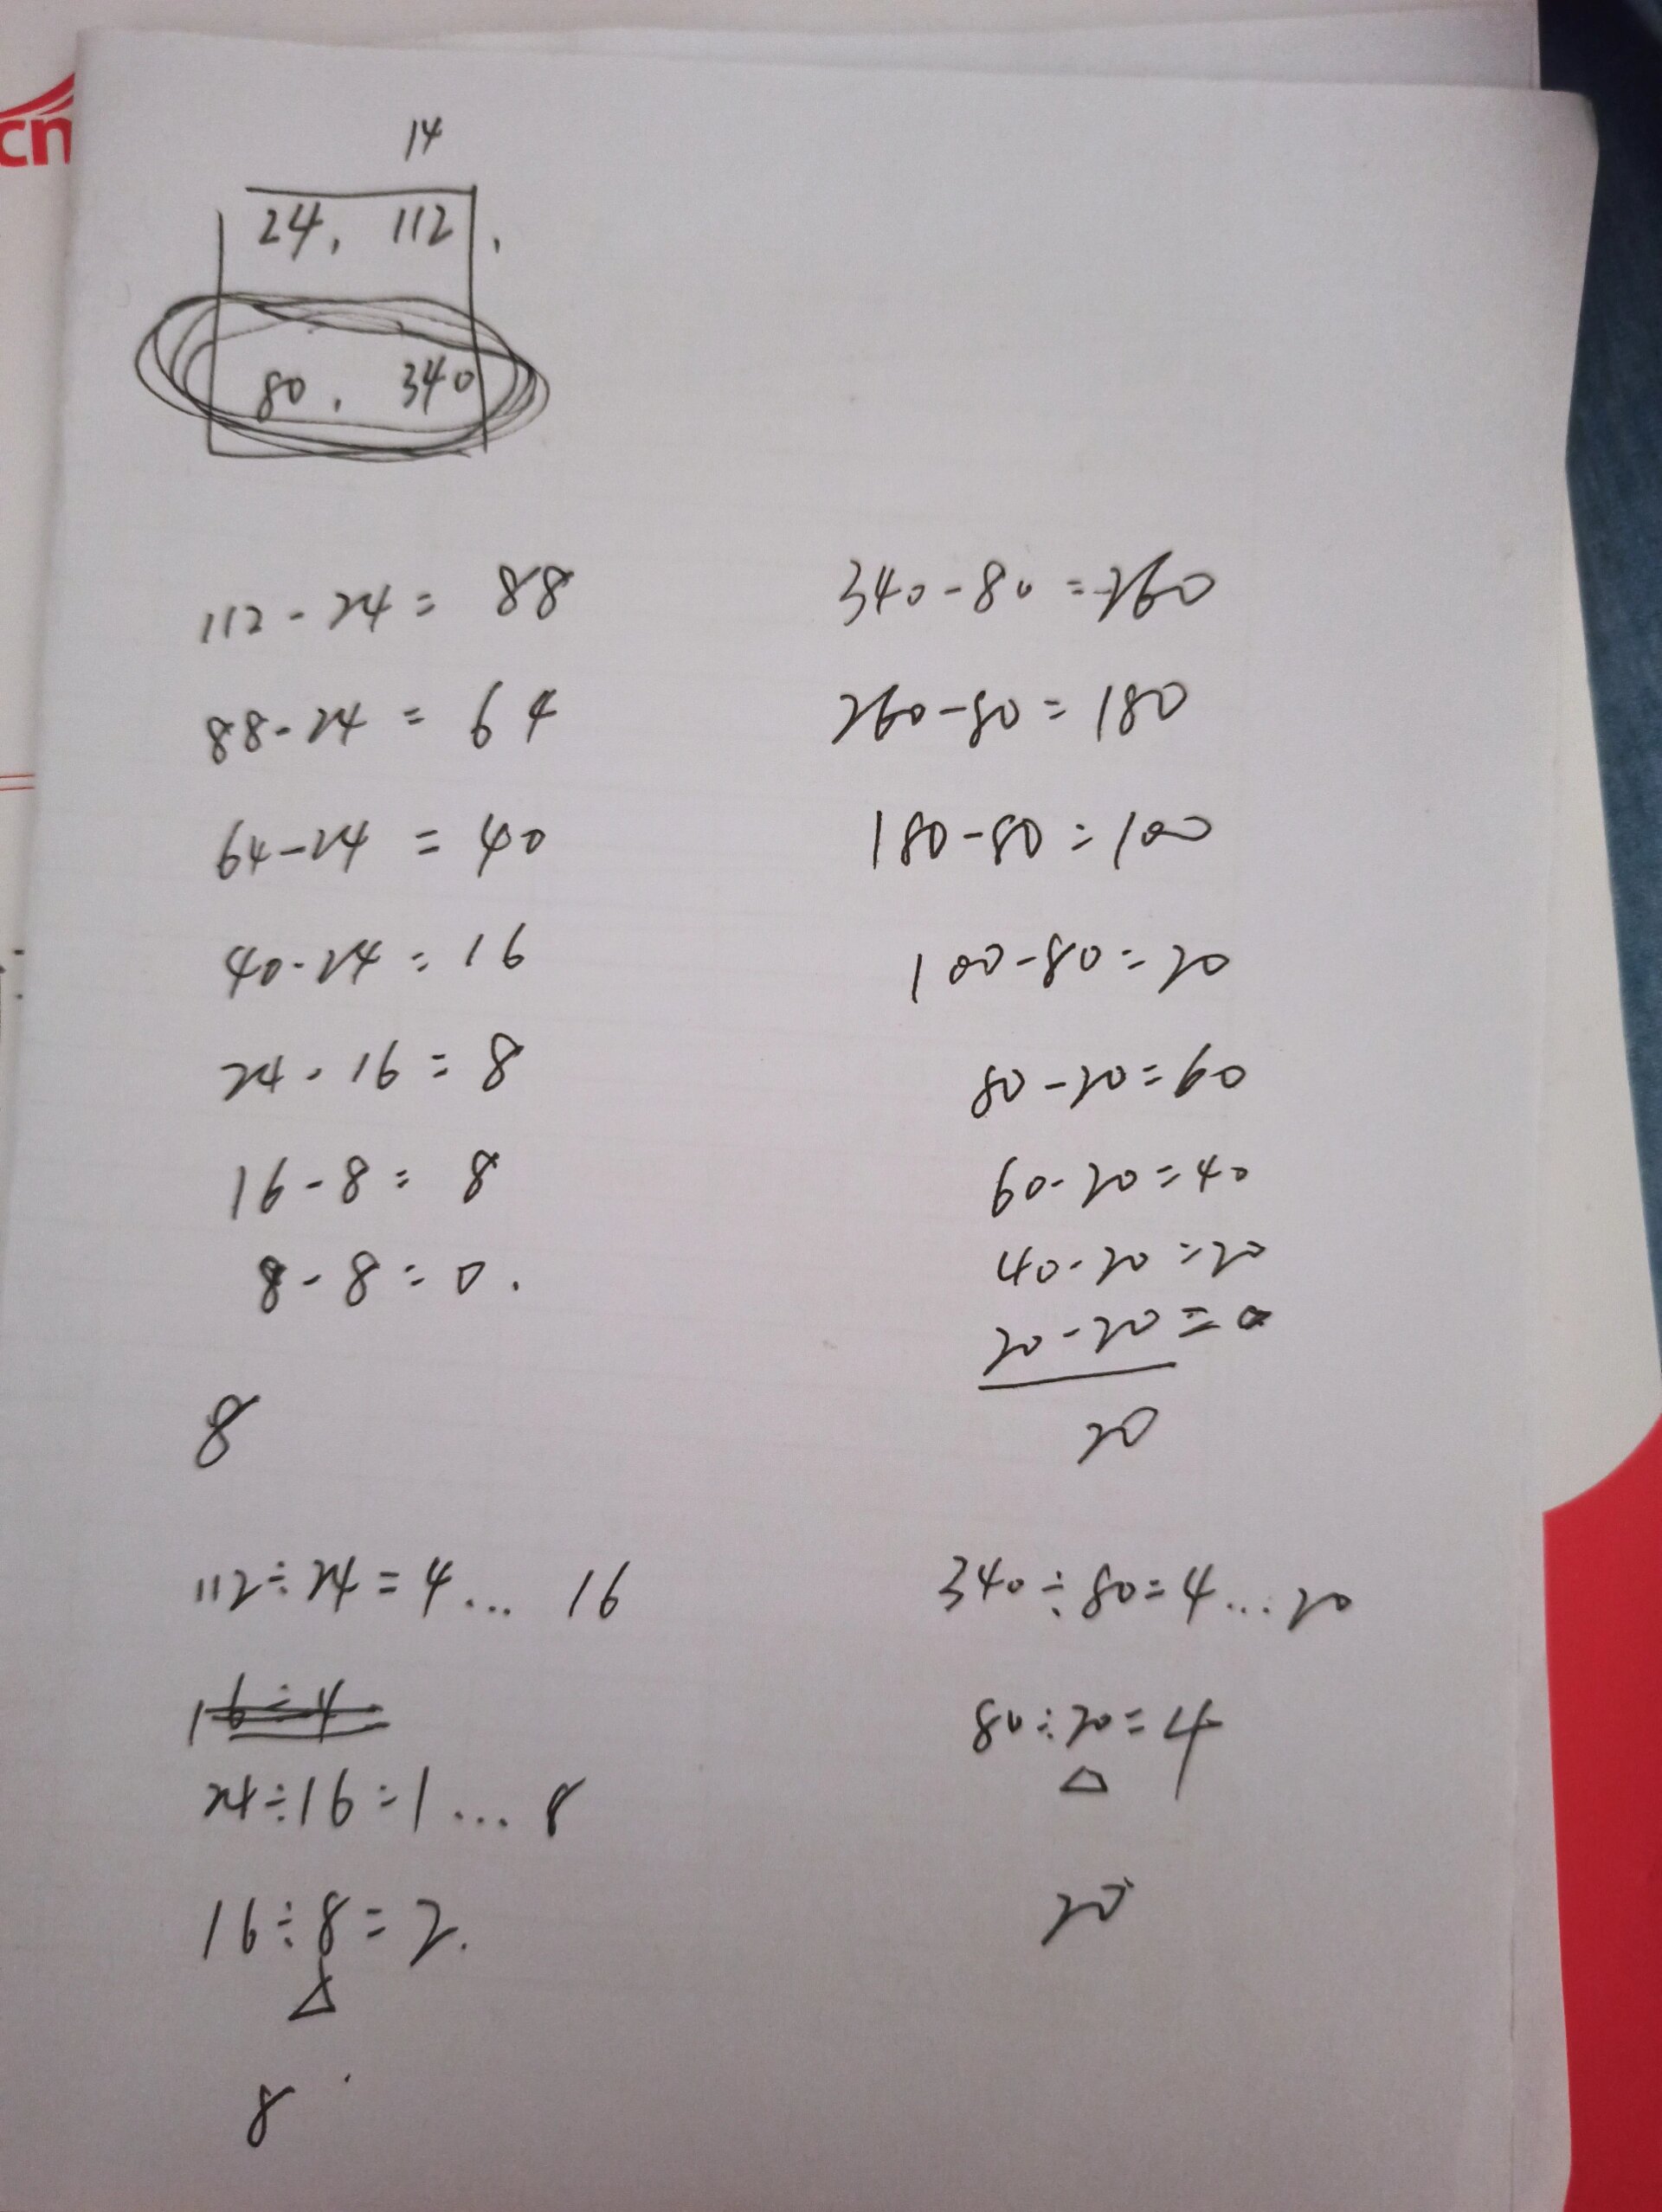 cn
14
24, 112,
80, 340
112-24= 88
88-24 = 64
64-24 = 40
40-24= 16
24-16 = 8
16-8= 8
8-8=0.
8
340-80=260
260-80=180
180-80=100
100-80=20
80-20=60
60-20=40
40-20=20
20-20=0
20
112÷24=4... 16
16÷4
24÷16=1... 8
16÷8=2.
8
340÷80=4...20
80÷20=4
20